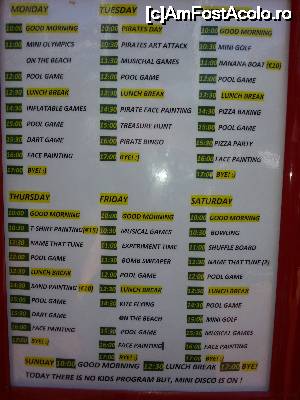 (c)AmFostAcolo.ro
MONDAY
10:00 GOOD MORNING
11:00 MINI OLYMPICS
ON THE BEACH
12:00 POOL GAME
12:30 LUNCH BREAK
14:30 INFLATABLE GAMES
15:00 POOL GAME
15:30 DART GAME
16:00 FACE PAINTING
17:00 BYE! :)
TUESDAY
10:00 PIRATES DAY
10:30 PIRATES ART ATTACK
11:30 MUSICHAL GAMES
12:00 POOL GAME
12:30 LUNCH BREAK
14:30 PIRATE FACE PAINTING
15:00 TREASURE HUNT
16:00 PIRATE BINGO
17:00 BYE! :)
10:00 GOOD MORNING
10:30 MINI-GOLF
11:00 BANANA BOAT (€10)
12:00 POOL GAME
12:30 LUNCH BREAK
14:30 PIZZA BAKING
15:00 POOL GAME
15:30 PIZZA PARTY
16:00 FACE PAINTING
17:00 BYE! :)
THURSDAY
10:00 GOOD MORNING
10:30 T-SHIRT PAINTING(€15)
11:30 NAME THAT TUNE
12:00 POOL GAME
12:30 LUNCH BREAK
14:30 SAND PAINTING (€10)
15:00 POOL GAME
15:30 DART GAME
16:00 FACE PAINTING
17:00 BYE! :)
FRIDAY
10:00 GOOD MORNING
10:30 MUSICAL GAMES
11:00 EXPERIMENT TIME
11:30 BOMB SWEAPER
12:00 POOL GAME
12:30 LUNCH BREAK
14:30 KITE FLYING
ON THE BEACH
15:30 POOL GAME
16:00 FACE PAINTING
17:00 BYE! :)
SATURDAY
10:00 GOOD MORNING
10:30 BOWLING
11:00 SHUFFLE BOARD
11:30 NAME THAT TUNE (2)
12:00 POOL GAME
12:30 LUNCH BREAK
14:30 POOL GAME
15:00 MINI-GOLF
15:30 MUSICAL GAMES
16:00 FACE PAINTING
17:00 BYE! :)
SUNDAY 10:00 GOOD MORNING 12:30 LUNCH BREAK 17:00 BYE!
TODAY THERE IS NO KIDS PROGRAM BUT, MINI DISCO IS ON !